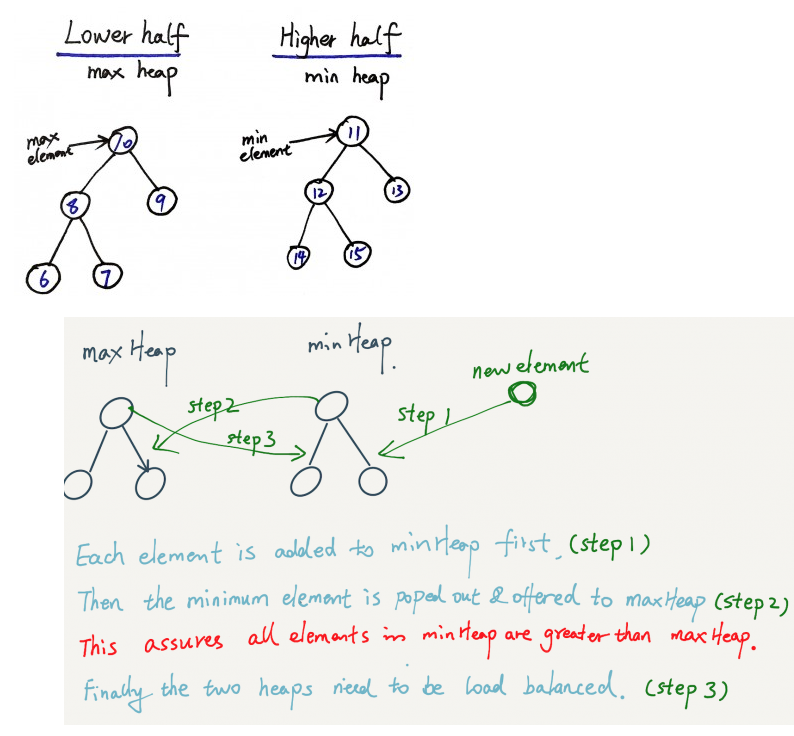 Lower half
max heap
Higher half
min heap
max
element
10
8
9
6
7
min
element
11
12
13
14
15
maxHeap
minHeap.
new element
step 1
step 2
step 3
Each element is added to minHeap first. (step 1)
Then the minimum element is poped out & offered to maxHeap (step 2)
This assures all elements in minHeap are greater than maxHeap.
Finally the two heaps need to be load balanced. (step 3)